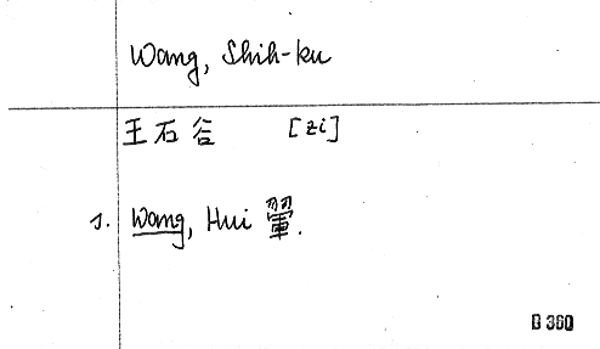 Wang, Shih-ku
王石谷 [zi]
s. Wang, Hui 翬.
B 360